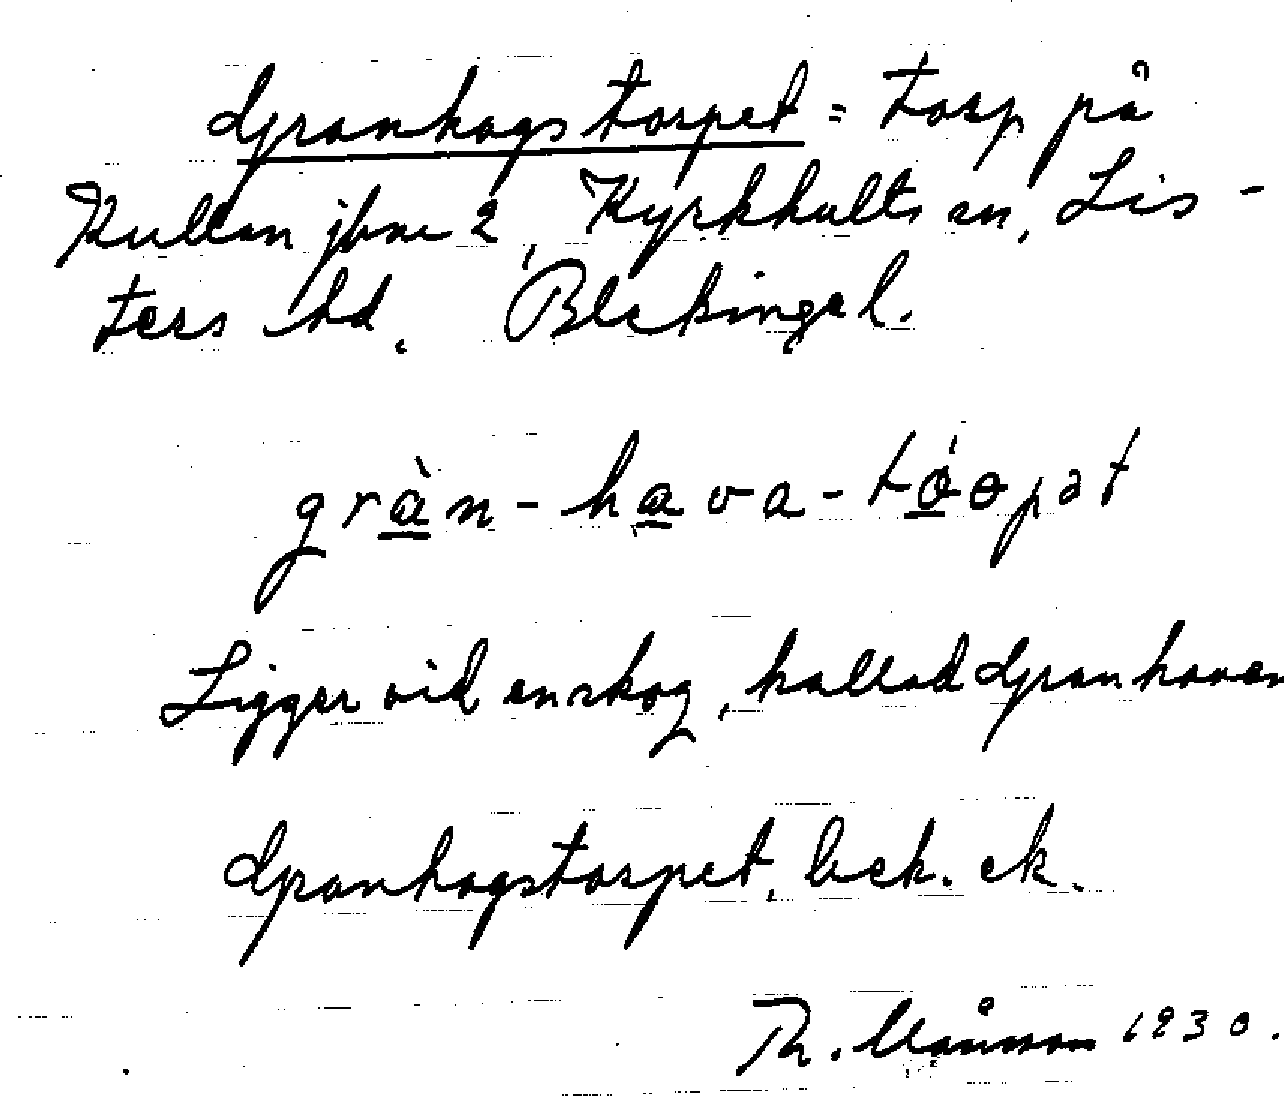 Granhagstorpet = torp på
Kullan jbne 2, Kyrkhults sn, Lis-
ters hd. Blekinge l.
gràn-hava-tóopət
Ligger vid en skog, kallad Granhaven
Granhagstorpet, bek. ek.
Th. Månsson 1930.